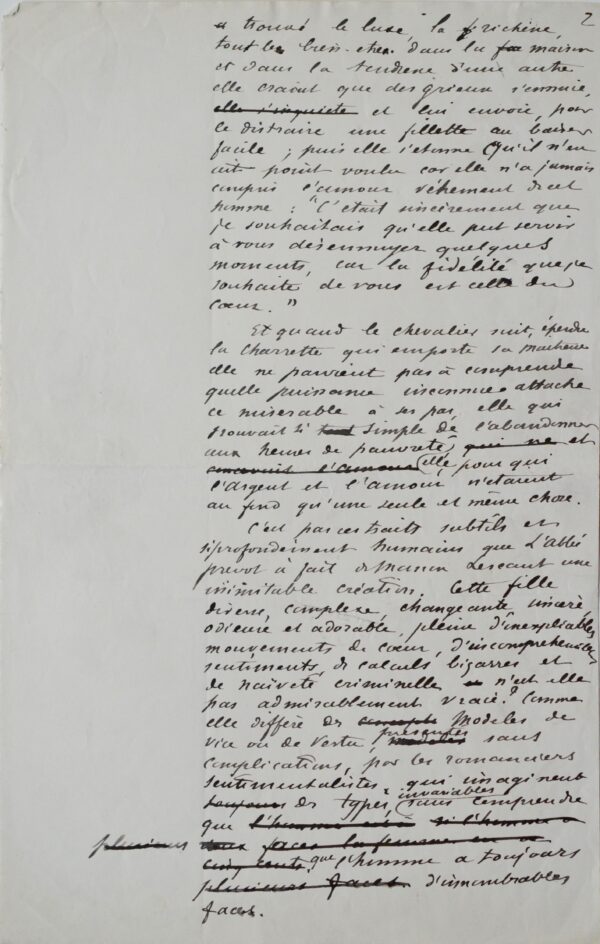 2
trouvé le luxe, la
tout les biens-cher dans la maison
et dans la tendresse d'une autre
elle craint que des grieux s'ennuie,
elle s'inquiete et lui envoie, pour
le distraire une fillette au baiser
facile ; puis elle s'etonne qu'il n'en
ait point voulu car elle n'a jamais
compris l'amour véhément de cet
homme : "C'était sincèrement que
je souhaitais qu'elle put servir
à vous désennuyer quelques
moments, car la fidélité que je
souhaite de vous est celle du
cœur."
Et quand le chevalier suit, éperdu
la charrette qui emporte sa
elle ne parvient pas à comprendre
quelle puissance inconnue attache
ce miserable à ses pas, elle qui
trouvait si tout simple de l'abandonner
aux heures de pauvreté, qui ne et
concevait l'amour elle pour qui
l'argent et l'amour n'etaient
au fond qu'une seule et même chose.
C'est par ces traits subtils et
si profondément humains que L'Abbé
prevot à fait de Manon Lescaut une
inimitable création. Cette fille
diverse, complexe, changeante, sincère,
odieuse et adorable, pleine d'inexpliables
mouvements de cœur, d'incomprehensibles
sentiments, de calculs bizarres et
de naïveté criminelle n'est elle
pas admirablement vraie? Comme
elle diffère des Modeles de
vice ou de vertu, présentés modèles sans
complications, par les romanciers
sentimentalistes, qui imaginent
toujours des types invariables, sans comprendre
que l'homme si l'homme a
plusieurs faces la femme en a
cinq cents, que l'homme a toujours
plusieurs faces d'innombrables
faces.